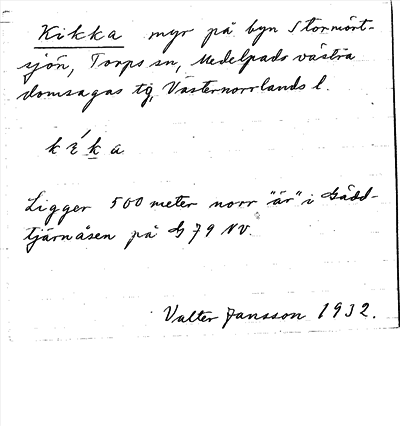 Kikka myr på byn Stormört-
sjön, Torps sn, Medelpads västra
domsagas tg, Västernorrlands l.
kíka
Ligger 500 meter norr "är" i Gädd-
tjärnåsen på G 79 NV.
Valter Jansson 1932.